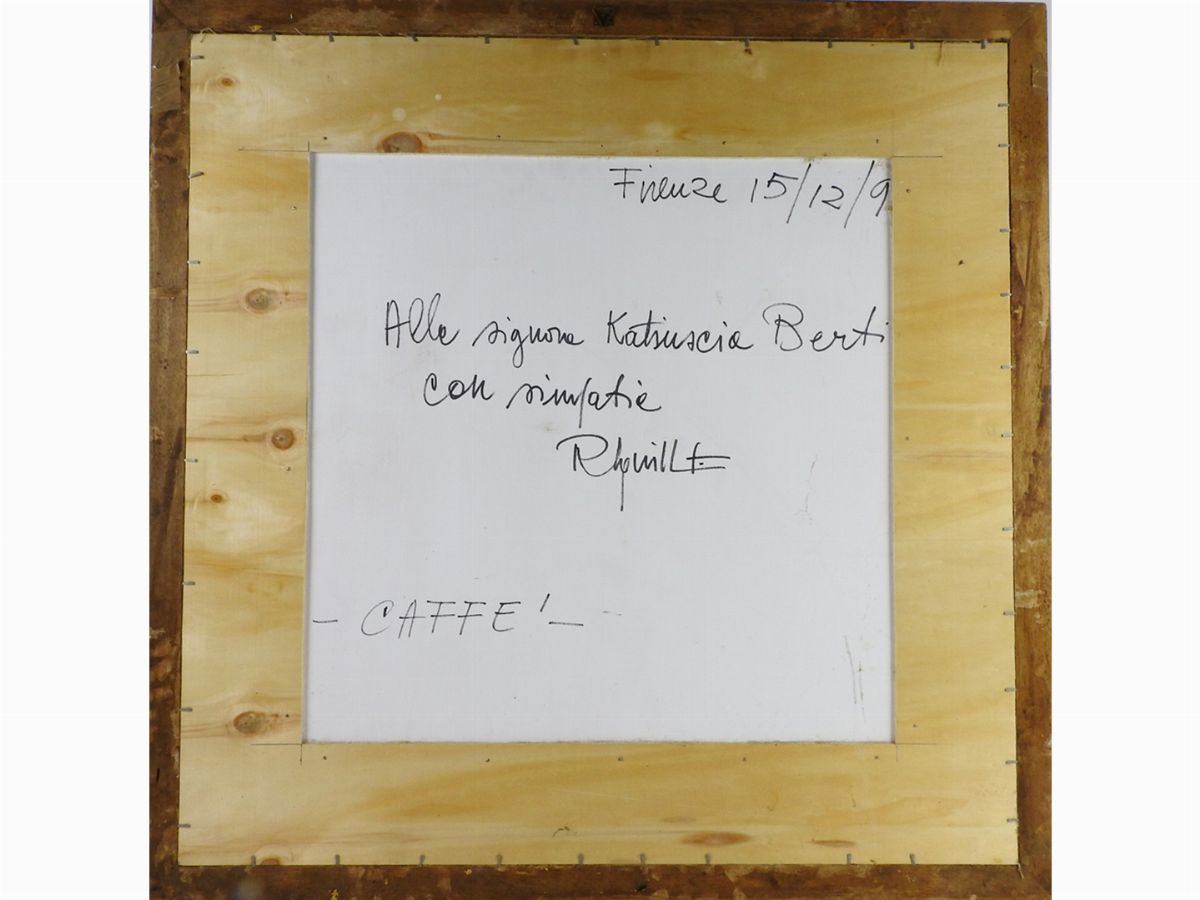 Firenze 15/12/9
Alla signora Katiuscia Berti
con simpatia
- CAFFE' -